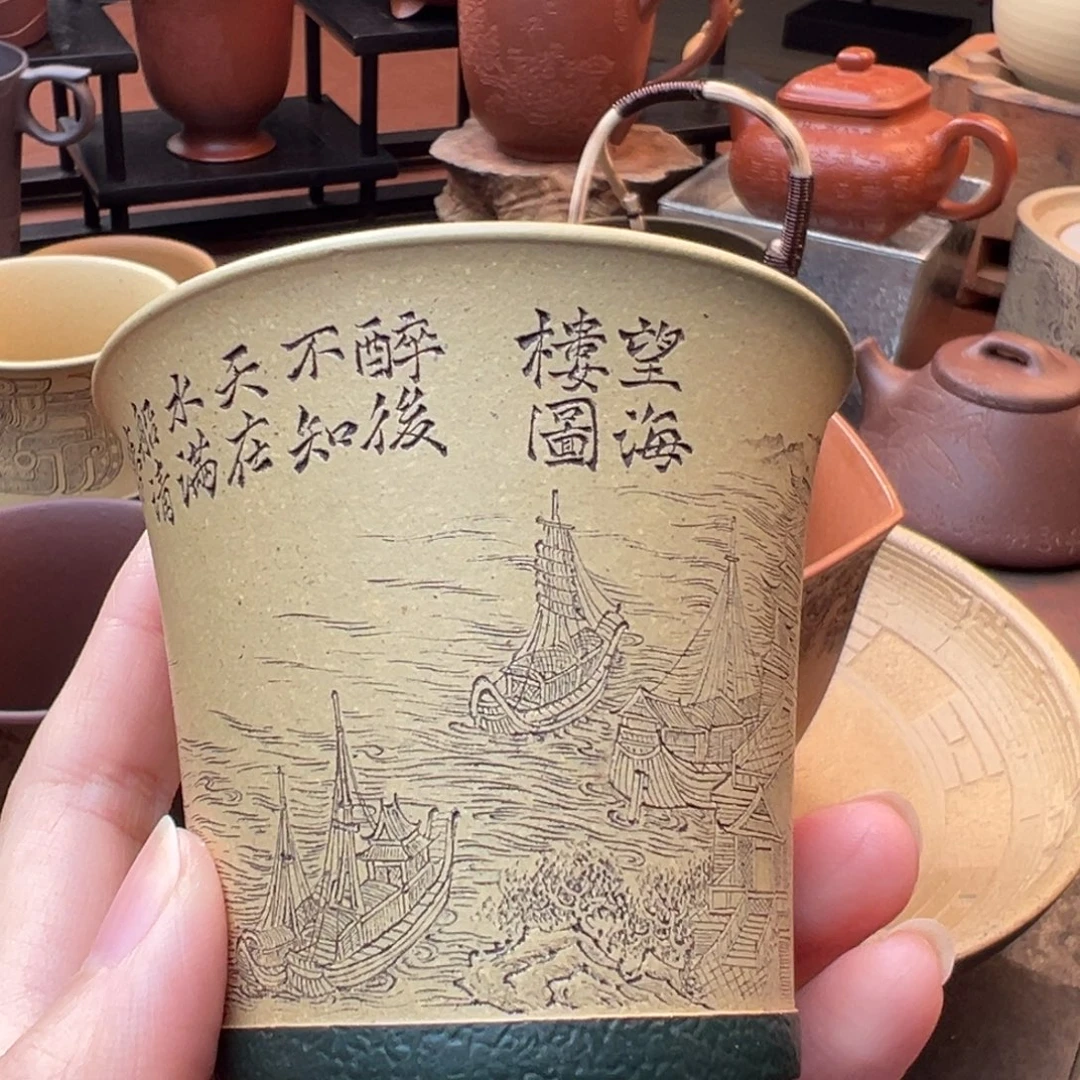 望海
樓圖
醉後
不知
天在
水滿
船清